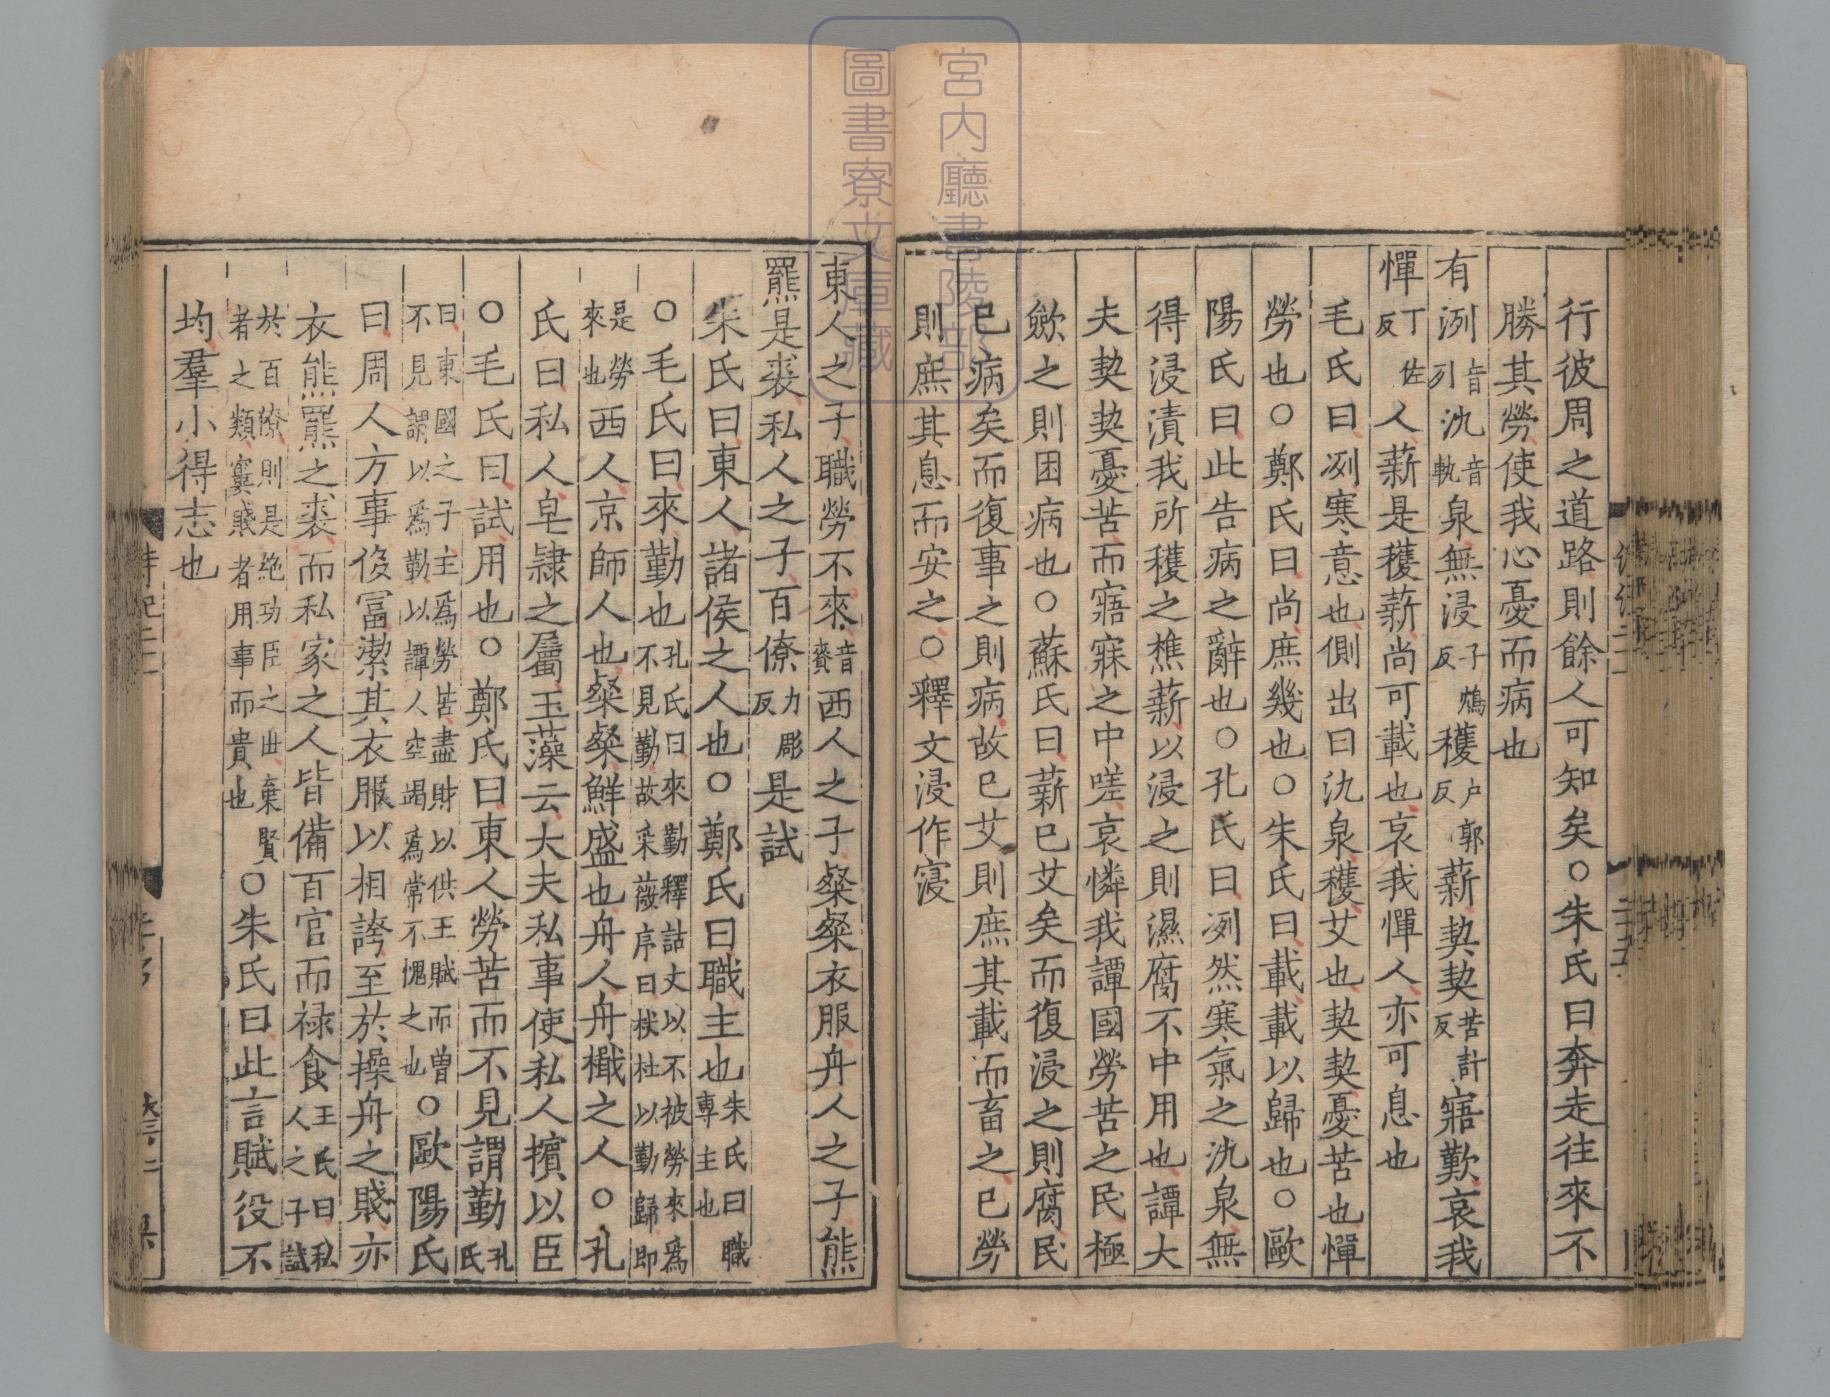 行彼周之道路則餘人可知矣○朱氏曰奔走往來不
勝其勞使我心憂而病也
有冽音列氿音軌泉無浸子鴆反穫戶郭反薪契契苦計反寤歎哀我
憚丁佐反人薪是穫薪尚可載也哀我憚人亦可息也
毛氏曰冽寒意也側出曰氿泉穫艾也契契憂苦也憚
勞也○鄭氏曰尚庶幾也○朱氏曰載載以歸也○歐
陽氏曰此告病之辭也○孔氏曰冽然寒氣之氿泉無
得浸漬我所穫之樵薪以浸之則濕腐不中用也譚大
夫契契憂苦而寤寐之中嗟哀憐我譚國勞苦之民極
歛之則困病也○蘇氏曰薪已艾矣而復浸之則腐民
已病矣而復事之則病故已艾則庶其載而畜之已勞
則庶其息而安之○釋文浸作寖
東人之子職勞不來音賚西人之子粲粲衣服舟人之子熊
羆是裘私人之子百僚力彫反是試
朱氏曰東人諸侯之人也○鄭氏曰職主也朱氏曰職專主也
○毛氏曰來勤也孔氏曰來勤釋詁文以不被勞來爲不見勤故采薇序曰杕杜以勤歸即
是勞來也西人京師人也粲粲鮮盛也舟人舟檝之人○孔
氏曰私人皂隸之屬玉藻云大夫私事使私人擯以臣
○毛氏曰試用也○鄭氏曰東人勞苦而不見謂勤孔氏
曰東國之子主爲勞苦盡財以供王賦而曾不見謂以爲勤以譚人空竭爲常不愧之也○歐陽氏
曰周人方事侈富潔其衣服以相誇至於操舟之賤亦
衣熊羆之裘而私家之人皆備百官而祿食王氏曰私人之子試
於百僚則是絶功臣之世棄賢者之類寠賤者用事而貴也○朱氏曰此言賦役不
均羣小得志也
宮内廳書陵部
圖書寮文庫藏